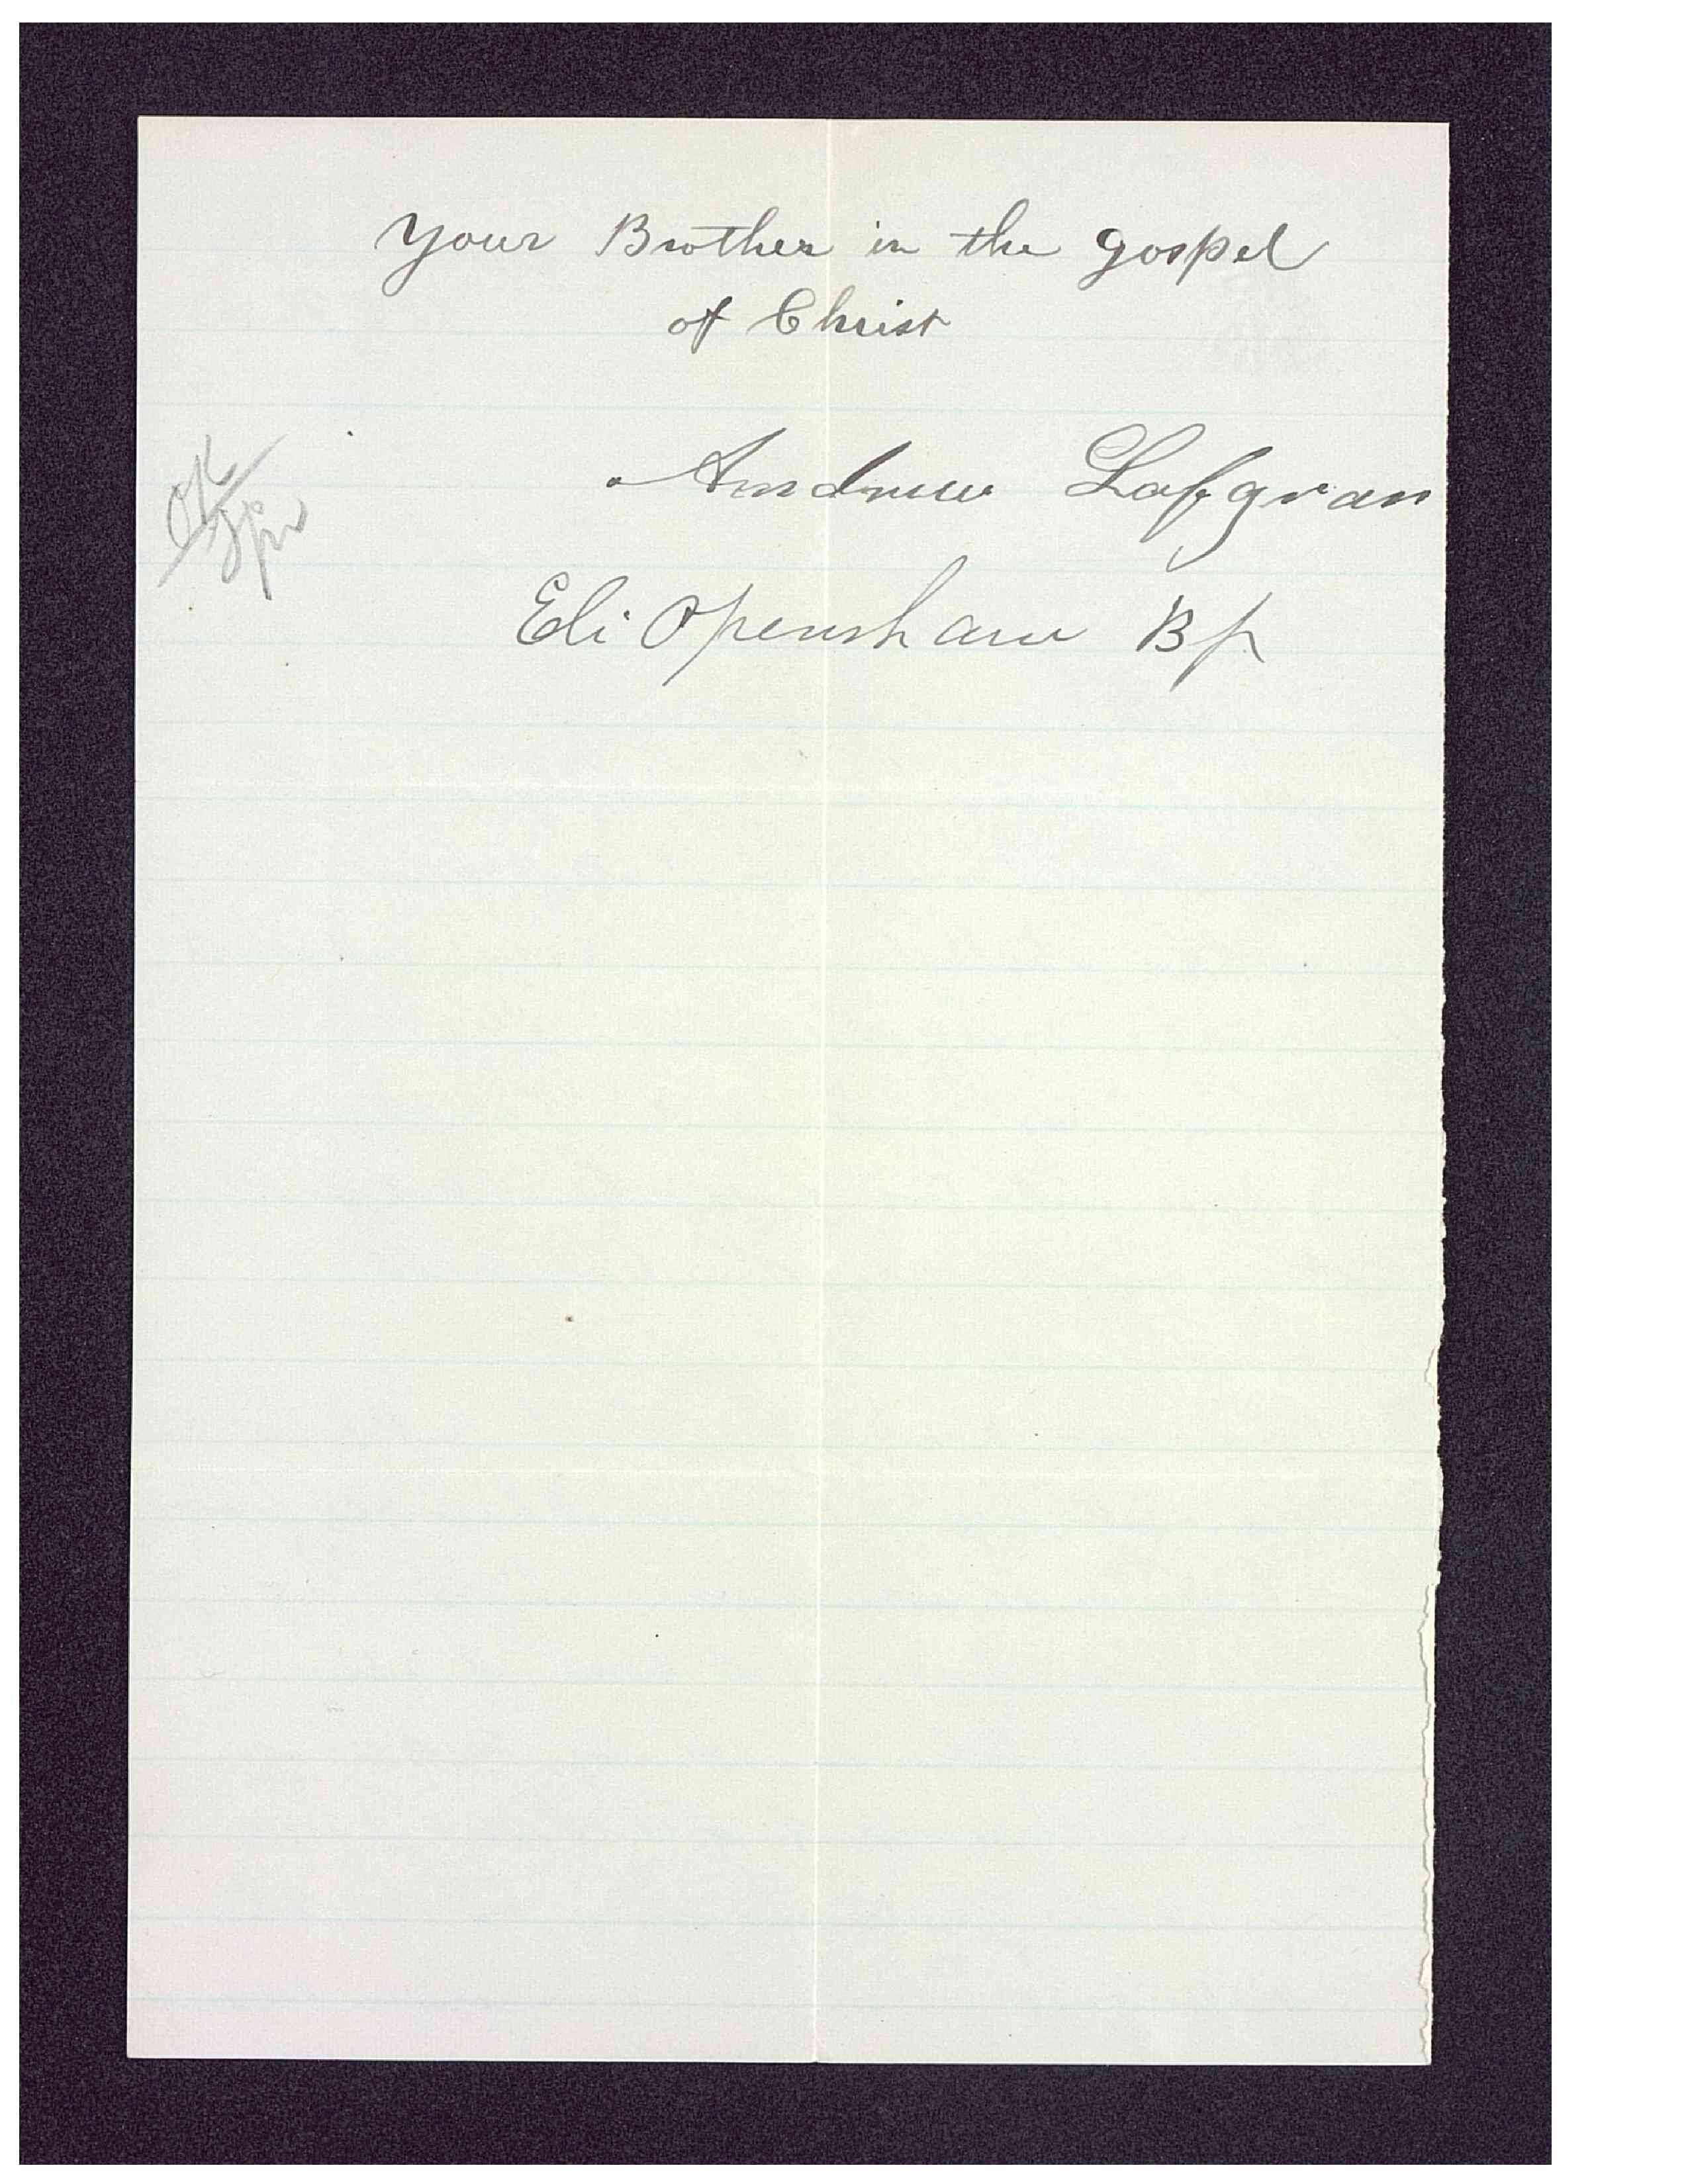 Your Brother in the gospel
of Christ
Andrew Lofgran
OK
Eli Openshaw Bp